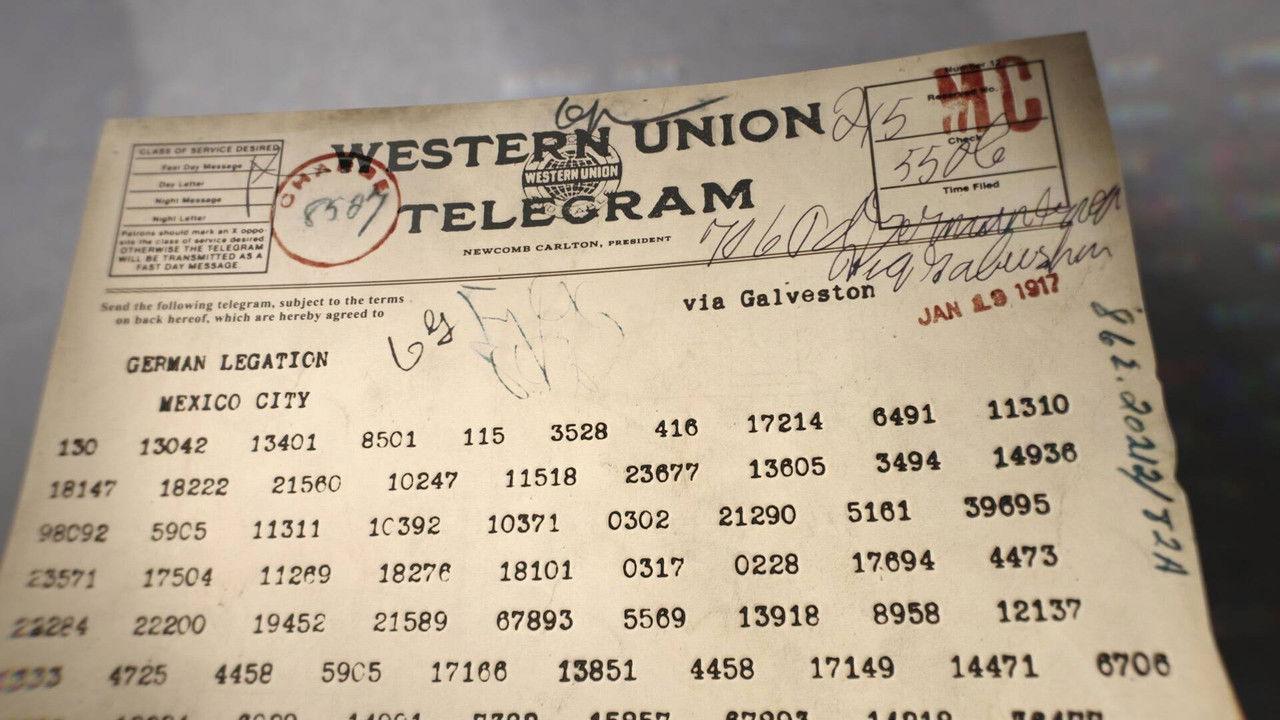 WESTERN UNION
WESTERN UNION
TELEGRAM
NEWCOMB CARLTON, PRESIDENT
CLASS OF SERVICE DESIRED
Fast Day Message
Day Letter
Night Message
Night Letter
Patrons should mark an X oppo-
site the class of service desired
OTHERWISE THE TELEGRAM
WILL BE TRANSMITTED AS A
FAST DAY MESSAGE.
CHARGE
8587
215
MC
Check
5506
Time Filed
Send the following telegram, subject to the terms
on back hereof, which are hereby agreed to
via Galveston
JAN 19 1917
GERMAN LEGATION
MEXICO CITY
130 13042 13401 8501 115 3528 416 17214 6491 11310
18147 18222 21560 10247 11518 23677 13605 3494 14936
98092 5905 11311 10392 10371 0302 21290 5161 39695
23571 17504 11269 18276 18101 0317 0228 17694 4473
22284 22200 19452 21589 67893 5569 13918 8958 12137
1333 4725 4458 5905 17166 13851 4458 17149 14471 6706
862.20212/82A